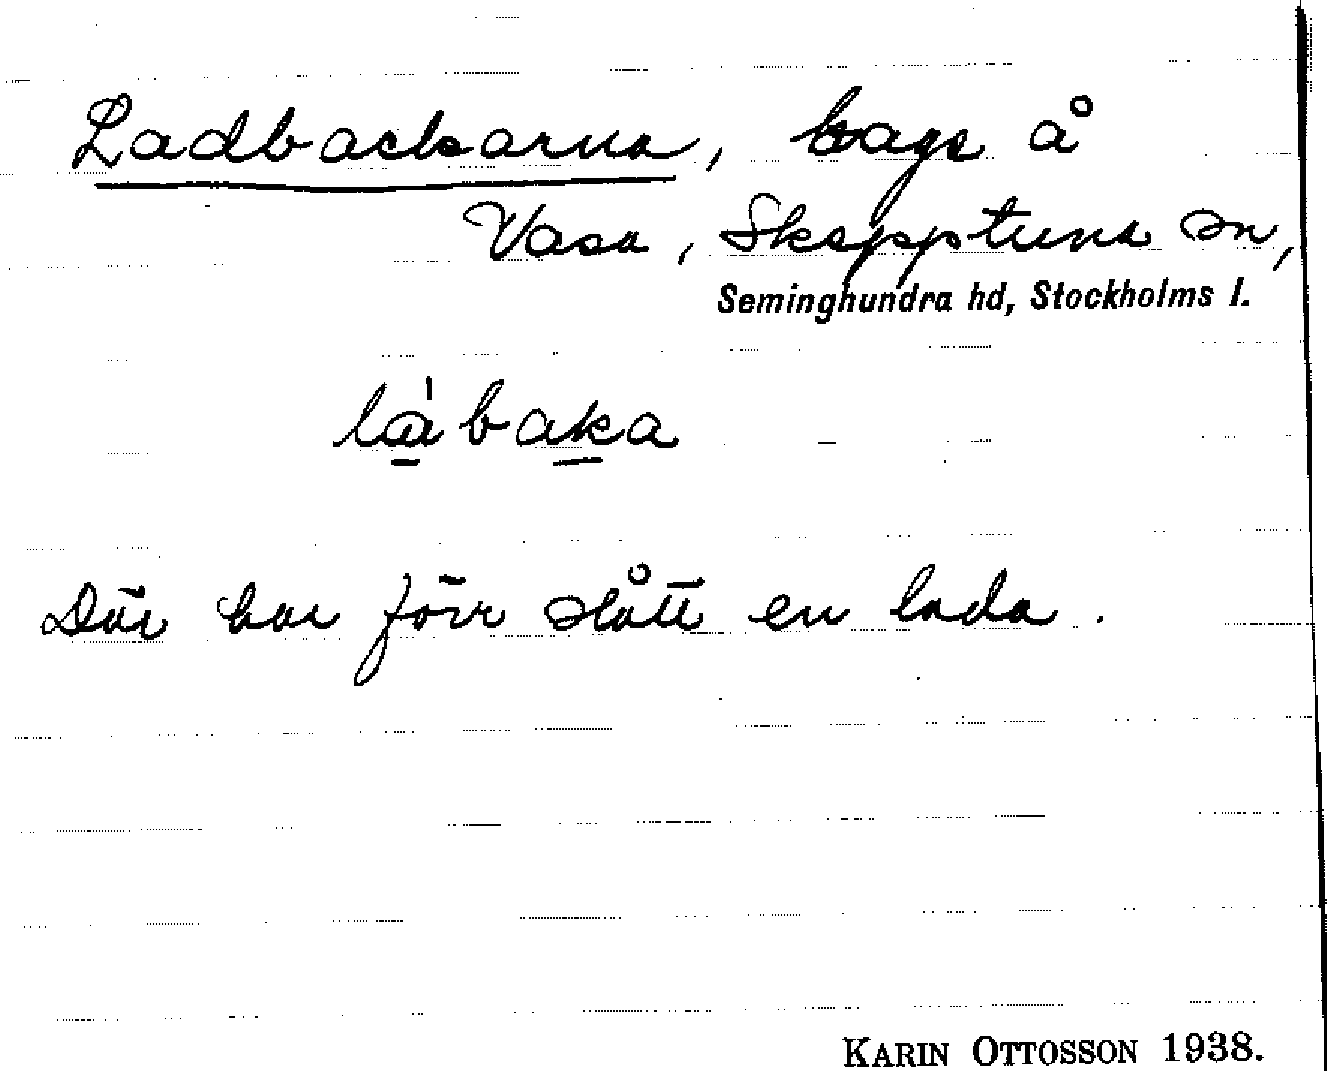 Ladbackarna, hage å
Vasa, Skepptuna sn,
Seminghundra hd, Stockholms l.
là̱ba̱ka
Där har förr stått en lada.
KARIN OTTOSSON 1938.